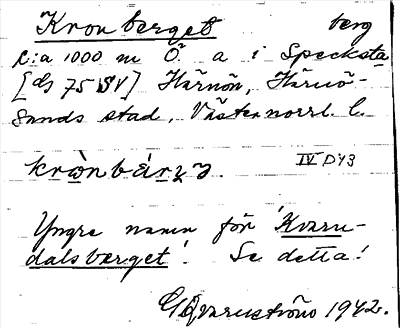 Kronberget berg
c:a 1000 m Ö a i Specksta
[ds 75 SV] Härnön, Härnö-
sands stad, Västernorrl. l.
IV D43
Yngre namn för 'Kvarn-
dalsberget'. Se detta!
1942.